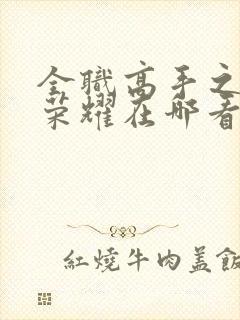 全職高手之
荣耀在那看
紅燒牛肉盖飯